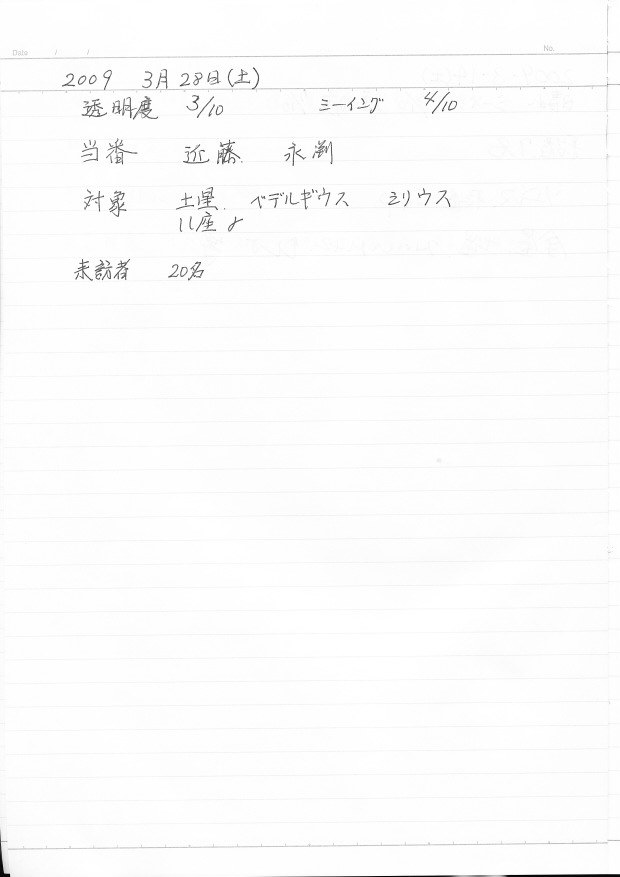 Date / / No.
2009 3月28日(土)
透明度 3/10 シーイング 4/10
当番 近藤 永渕
対象 土星. ベデルギウス シリウス
しし座γ
来訪者 20名